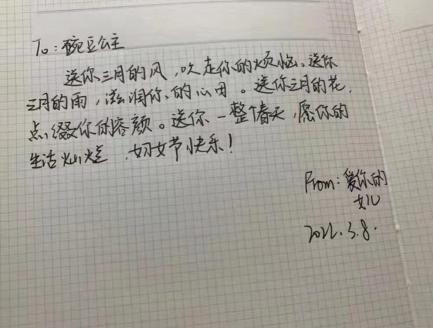 To：豌豆公主
送你三月的风，吹走你的烦恼、送你
三月的雨，滋润你的心田。送你三月的花，
点缀你的容颜。送你一整个春天，愿你的
生活灿烂 妇女节快乐！
From：爱你的
女儿
2022.3.8.